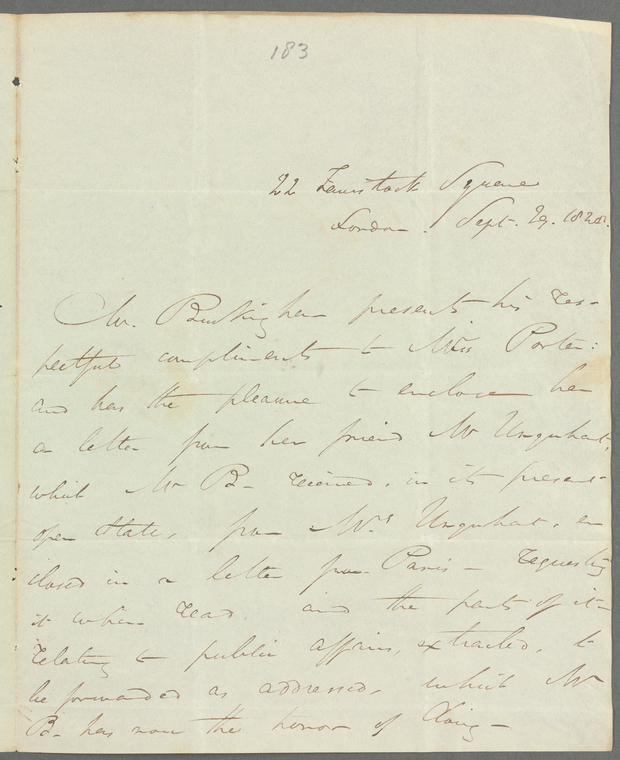 183
22 Tavistock Square
London. Sept. 29. 1828.
Mr. Buckingham presents his res-
pectful compliments to Miss Porter:
and has the pleasure to enclose her
a letter from her friend Mr Urquhart,
which Mr B- received, in its present
open state, from Mrs Urquhart, en
closed in a letter from Paris - requesting
it when read and the parts of it
relating to public affairs, extracted, to
be forwarded as addressed, which Mr
B- has now the honor of doing -